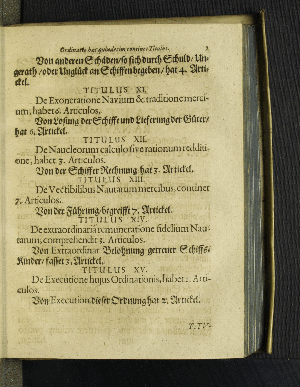 Ordinatio hæc quindecim continet Titulos. 3
Von anderen Schäden/ so sich durch Schuld/ Un-
gerath/ oder Unglück an Schiffen begeben/ hat 4. Arti-
ckel.
TITULUS XI.
De Exoneratione Navium & traditione merci-
um, habet 6. Articulos.
Von Losung der Schiffe und Lieferung der Güter/
hat 6. Artickel.
TITULUS XII.
De Naucleorum calculo sive rationum redditi-
one, habet 3. Articulos.
Von der Schiffer Rechnung hat 3. Artickel.
TITULUS XIII.
De Vectibilibus Nautarum mercibus, continet
7. Articulos.
Von der Führung/ begreifft 7. Artickel.
TITULUS XIV.
De extraordinaria remuneratione fidelium Nau-
tarum, comprehendit 3. Articulos.
Von Extraordinar Belohnung getreuer Schiffs-
Kinder/ fasset 3. Artickel.
TITULUS XV.
De Executione hujus Ordinationis, habet 2. Arti-
culos.
Von Execution dieser Ordnung hat 2. Artickel.